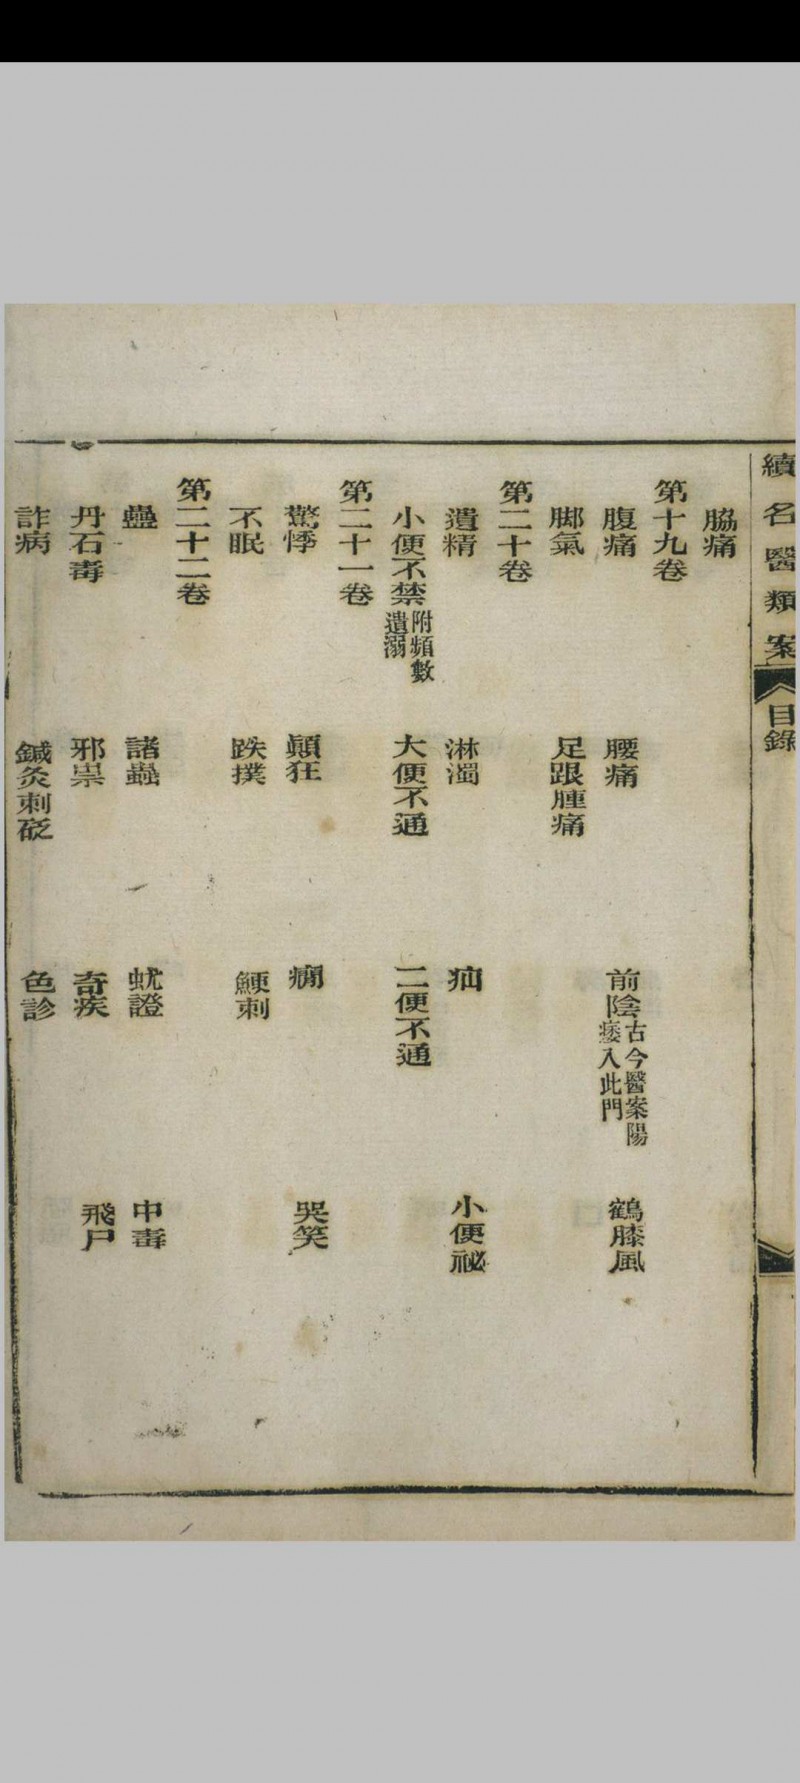 續名醫類案
目錄
脇痛
第十九卷
腹痛 腰痛 前陰 古今醫案陽痿入此門 鶴膝風
脚氣 足跟腫痛
第二十卷
遺精 淋濁 疝 小便祕
小便不禁 附頻數遺溺 大便不通 二便不通
第二十一卷
驚悸 顛狂 癇 哭笑
不眠 跌撲 鯁刺
第二十二卷
蠱 諸蟲 蚘證 中毒
丹石毒 邪祟 奇疾 飛尸
詐病 鍼灸刺砭 色診